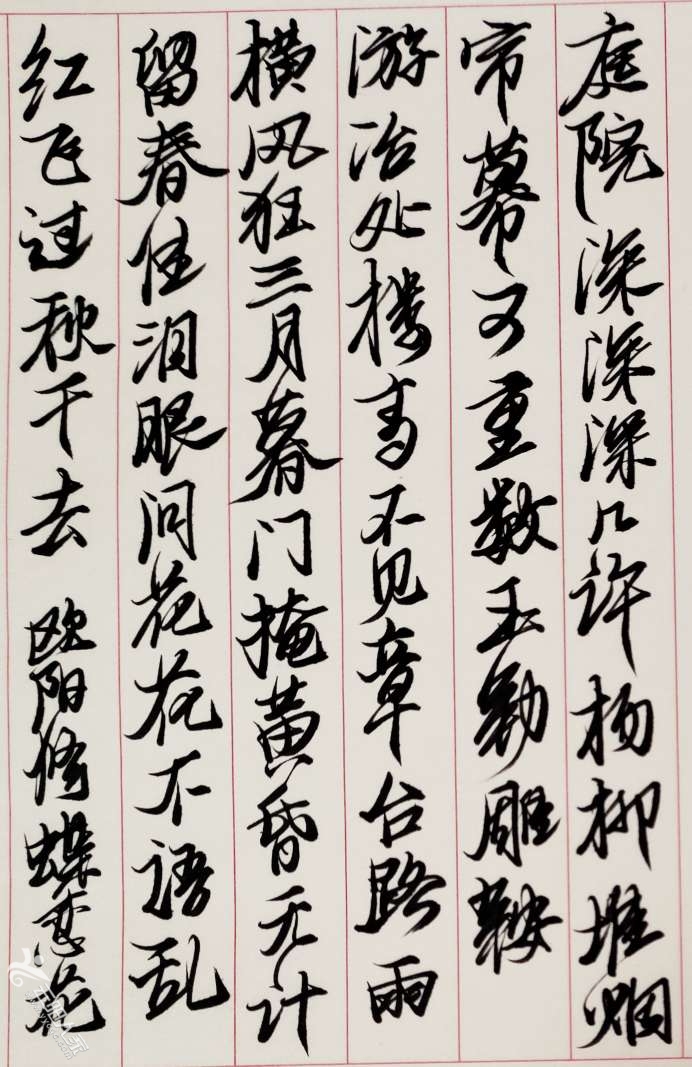 庭院深深深几许杨柳堆烟
帘幕可重数玉勒雕鞍
游冶处楼高不见章台路雨
横风狂三月暮门掩黄昏无计
留春住泪眼问花花不语乱
红飞过秋千去 欧阳修蝶恋花